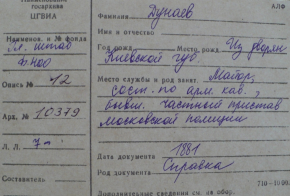 Наименование
госархива
ЦГВИА
Наименов. и № фонда
Гл. штаб
ф. 400
Опись № 12
Арх. № 10379
Л. Л. 7
Составитель
АЛФ
Фамилия Дунаев
Имя и отчество
Год рожд. Место рожд. Из дворян
Киевской губ.
Место службы и род занят. Майор,
сост. по арм. кав.,
бывш. частный пристав
московской полиции
Дата документа 1881
Род документа Справка
710-1000.
Дополнительные сведения см. на обор.